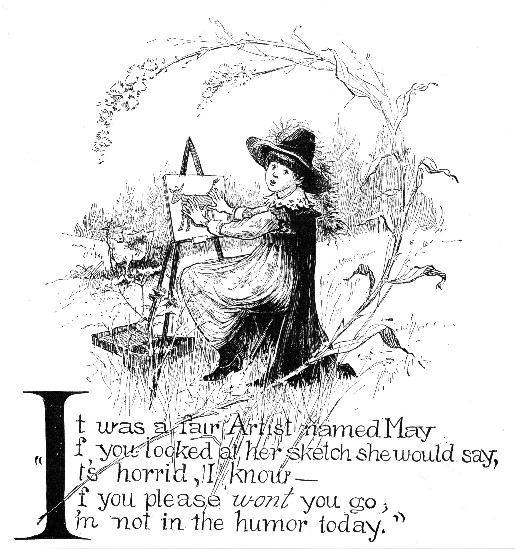 It was a fair Artist named May
If you looked at her sketch she would say,
"It's horrid, I know —
If you please wont you go;
I'm not in the humor today."